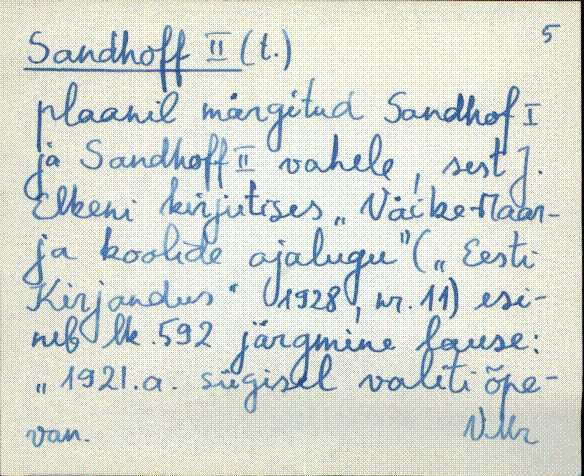 5
Sandhoff II (t.)
plaanil märgitud Sandhof I
ja Sandhoff II vahele, sest J.
Elkeni kirjutises „Väike-Maar-
ja koolide ajalugu" („Eesti
Kirjandus" 1928, nr. 11) esi-
neb lk. 592 järgmine lause:
„1921. a. sügisel valiti õpe-
van. VMr